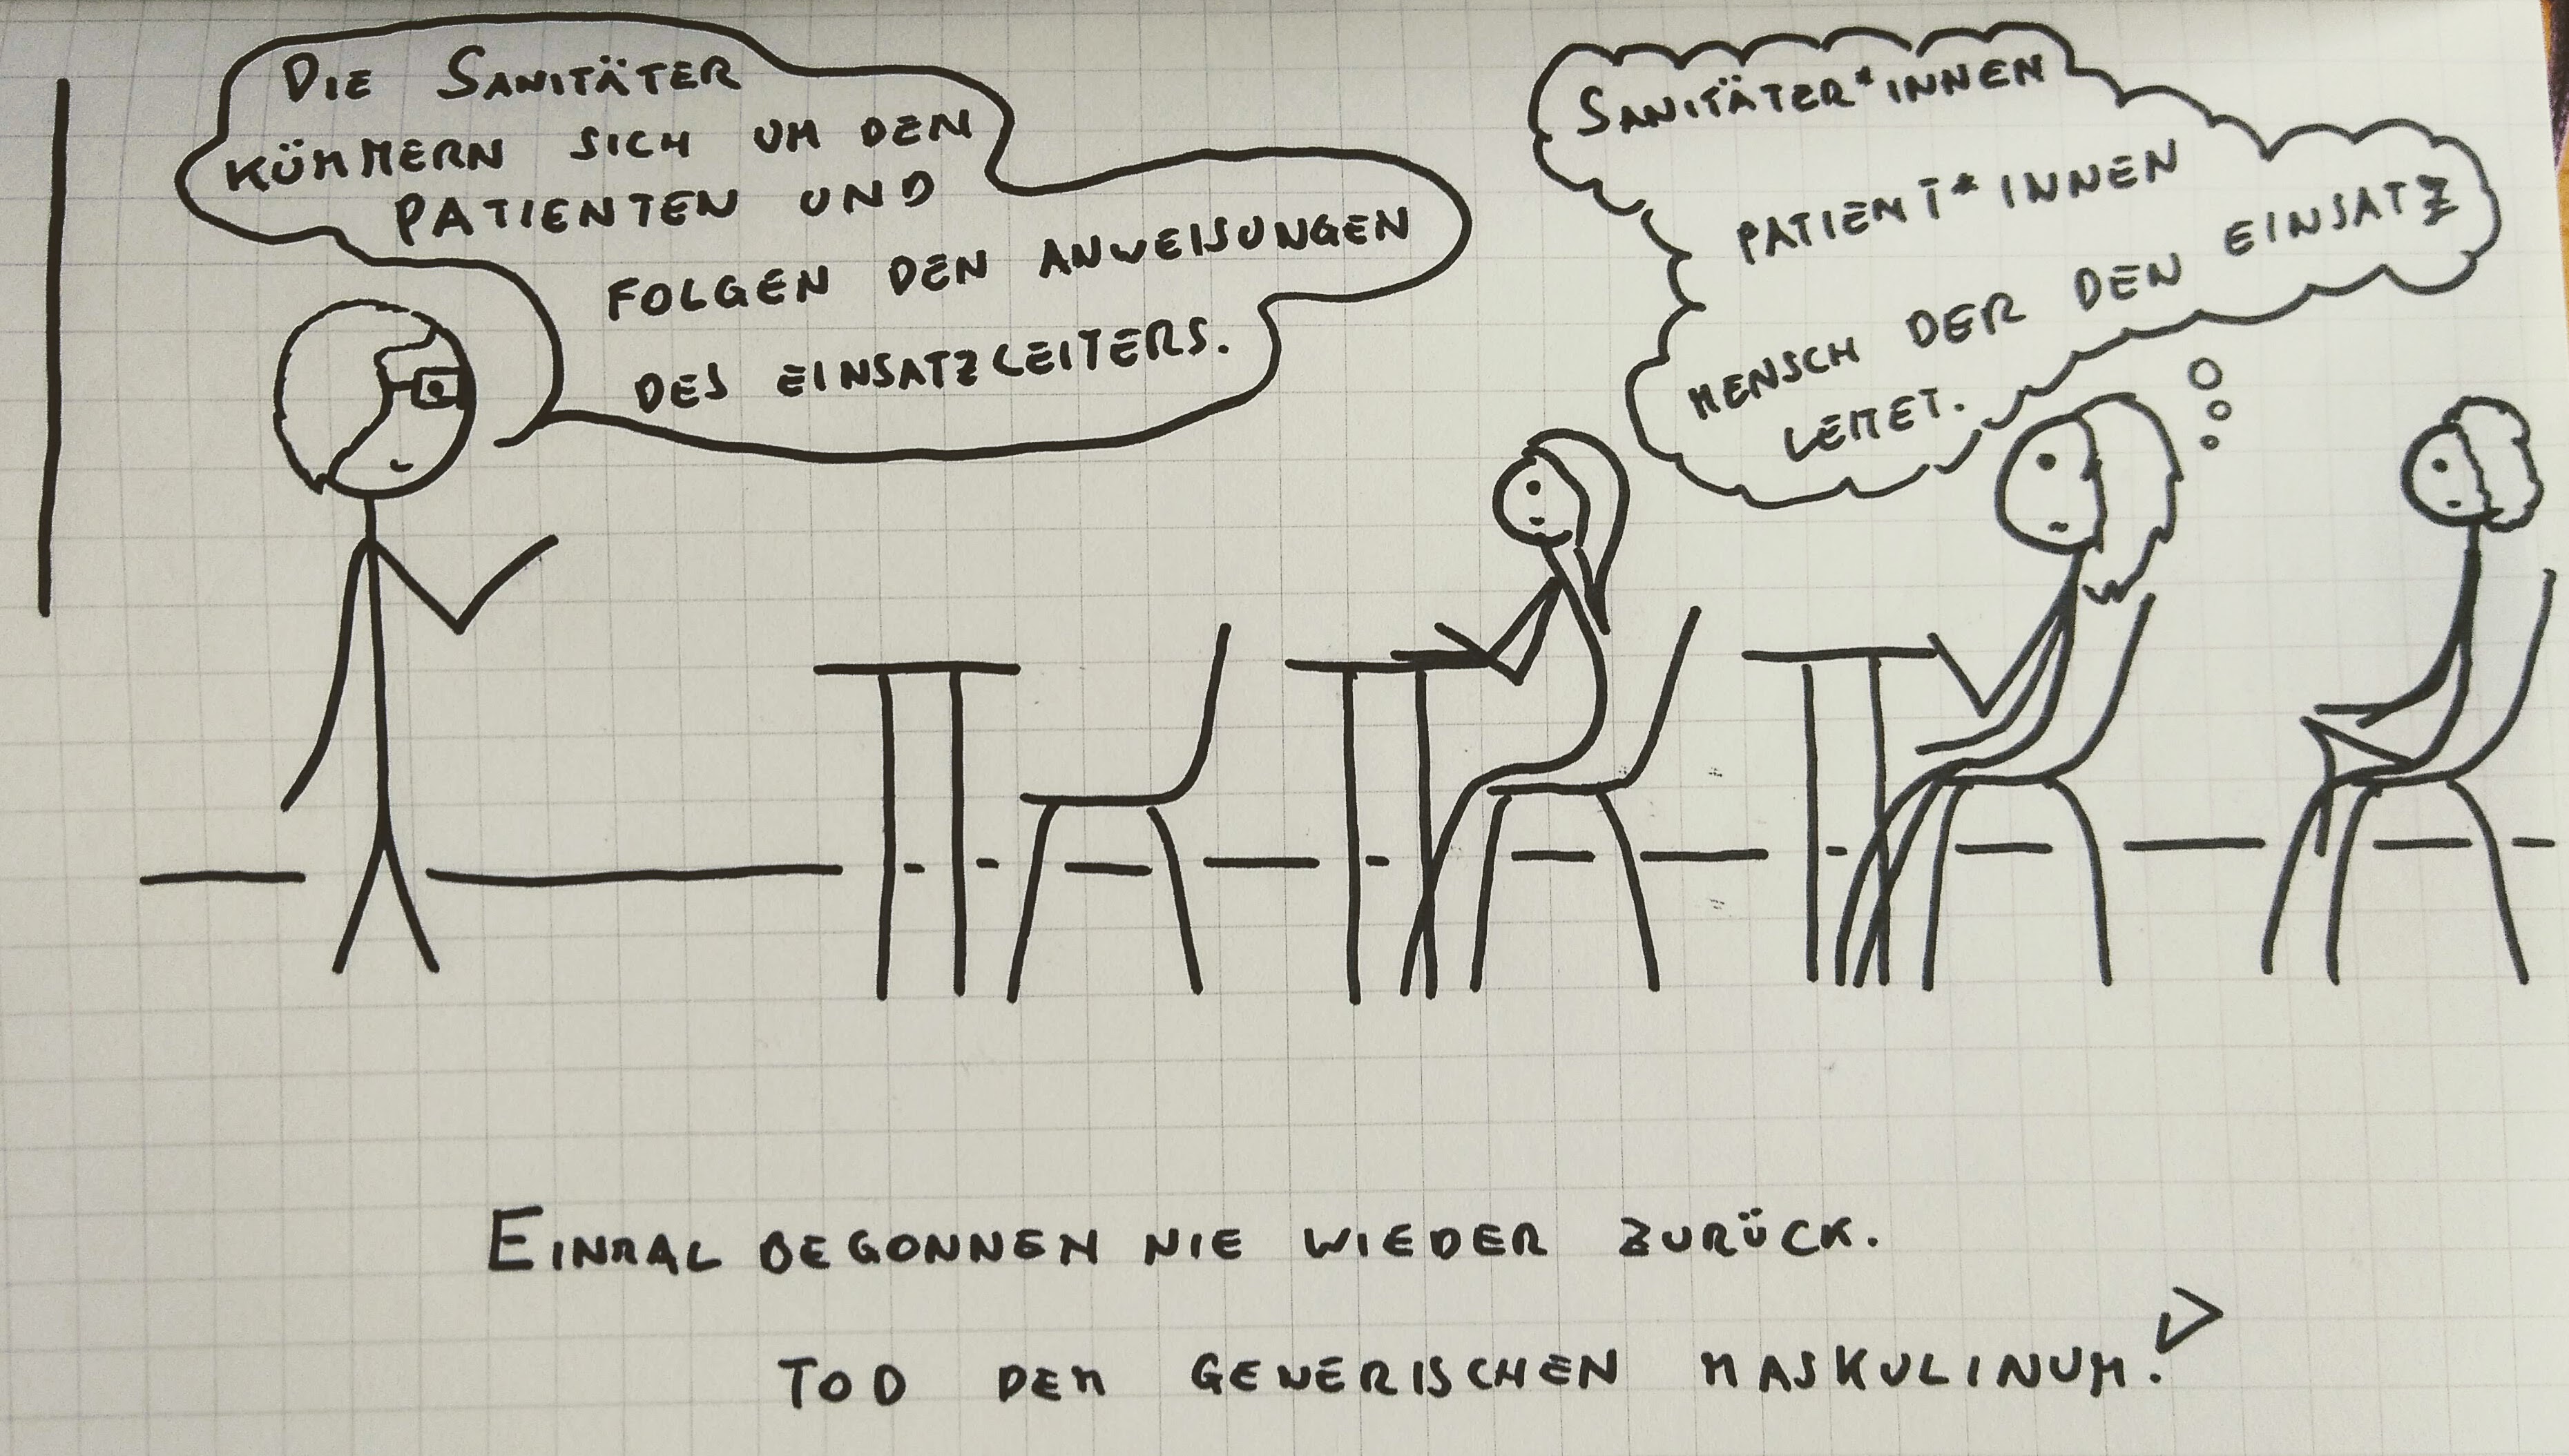 DIE SANITÄTER
KÜMMERN SICH UM DEN
PATIENTEN UND
FOLGEN DEN ANWEISUNGEN
DES EINSATZLEITERS.
SANITÄTER*INNEN
PATIENT*INNEN
MENSCH DER DEN EINSATZ
LEITET.
EINMAL BEGONNEN NIE WIEDER ZURÜCK.
TOD DEM GENERISCHEN MASKULINUM!